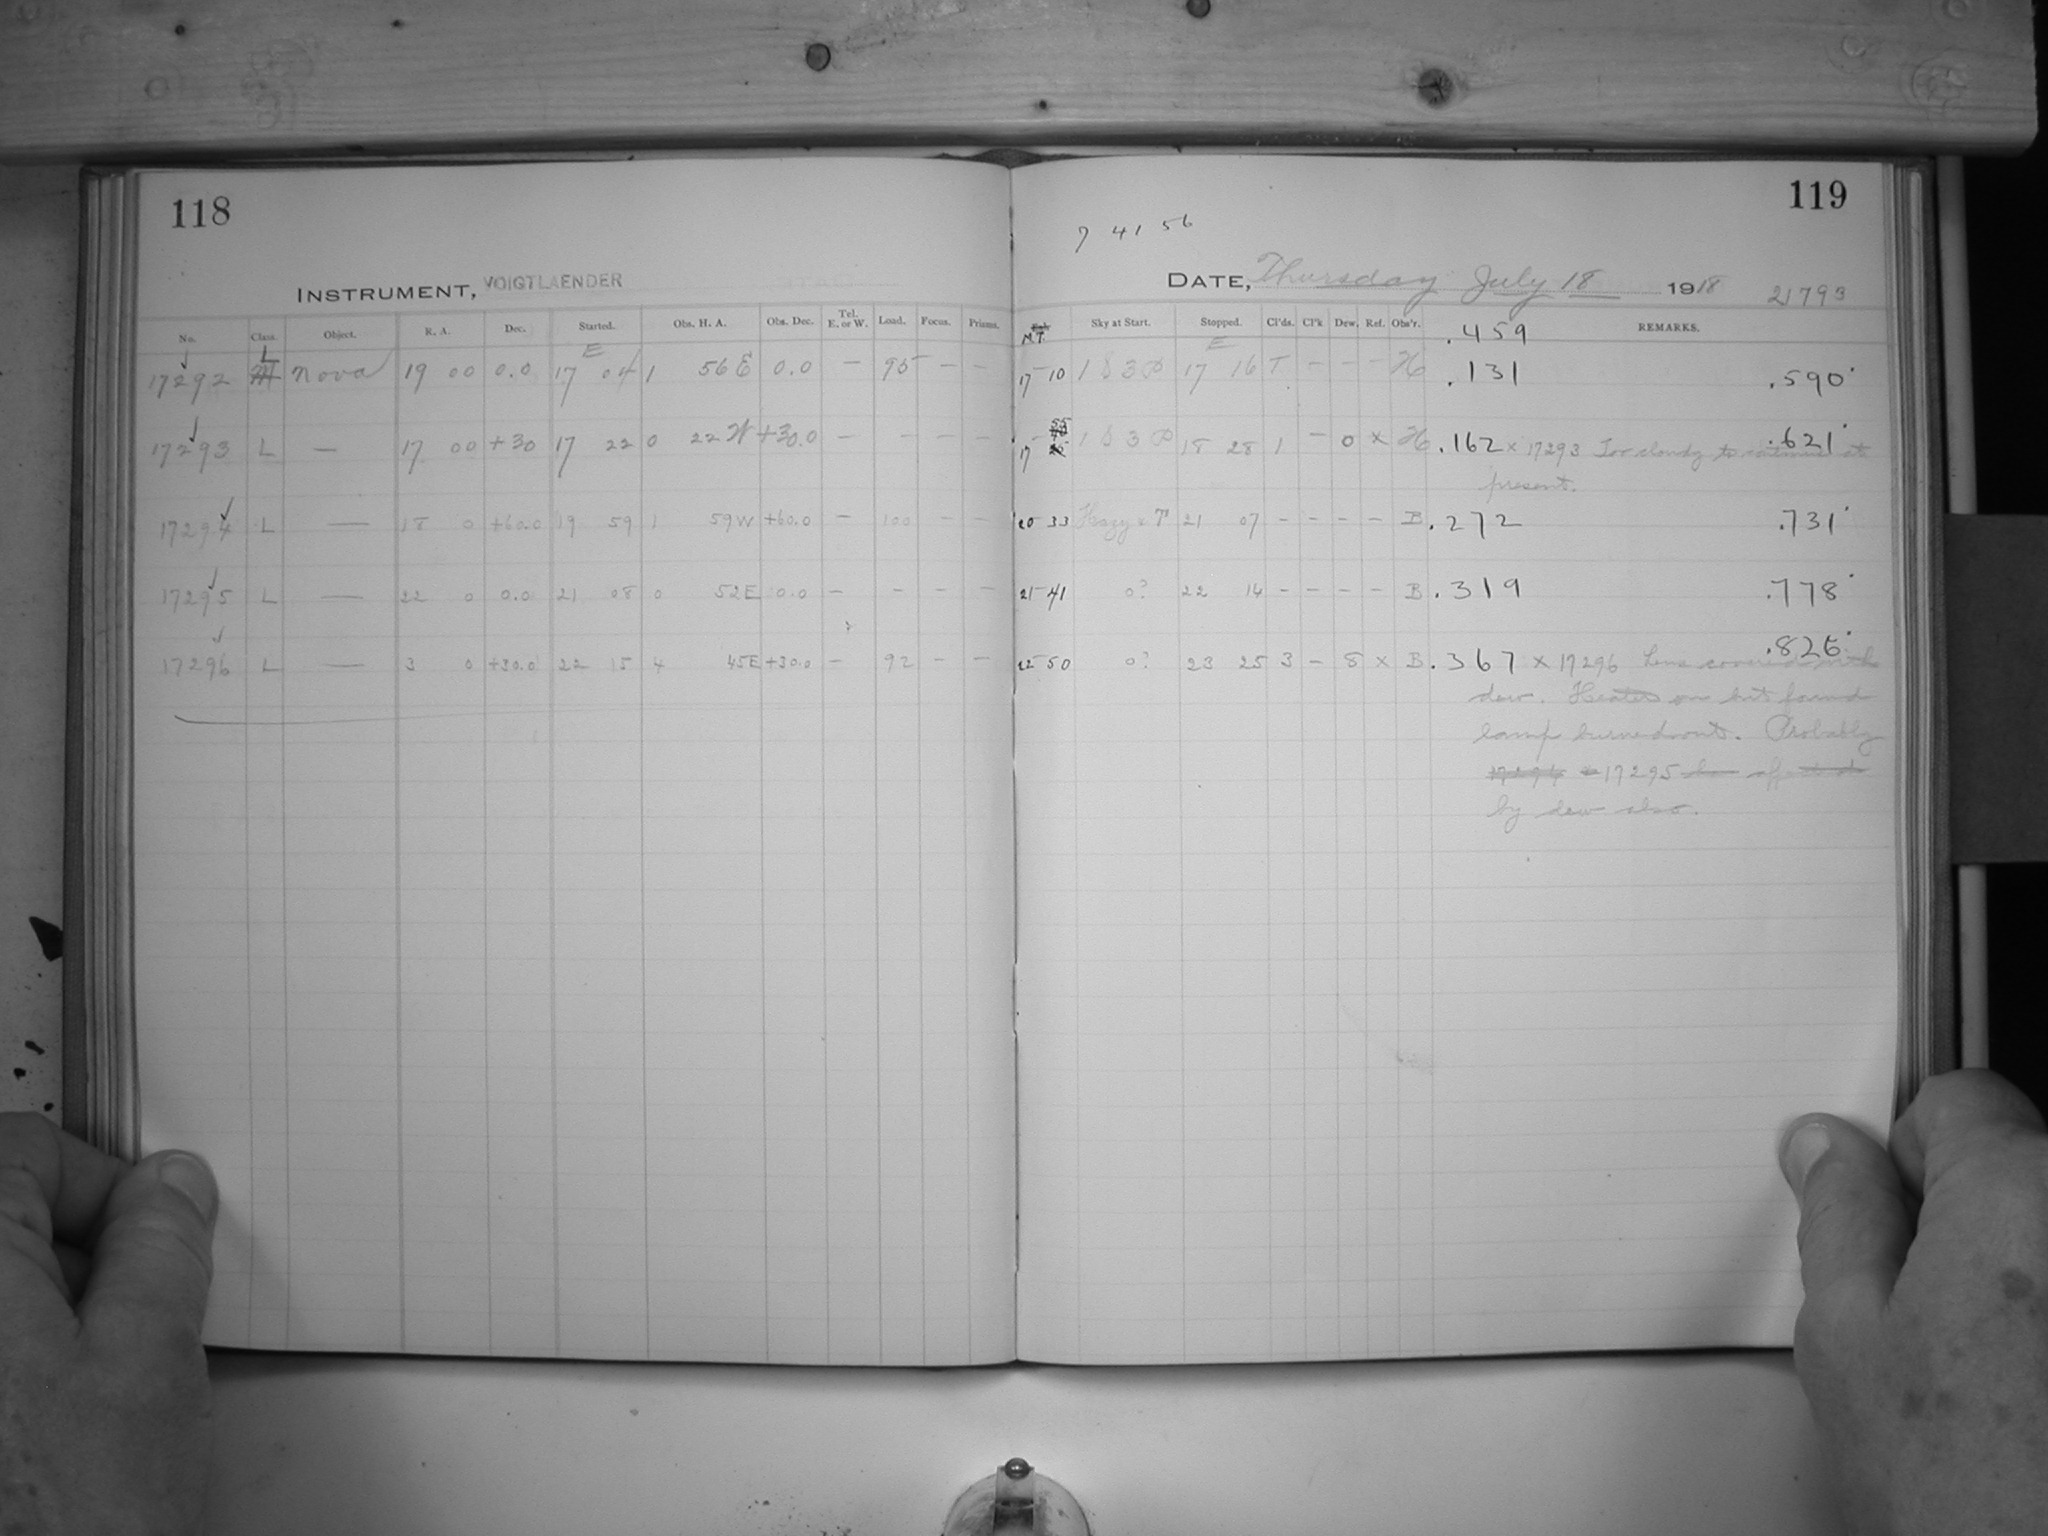 118
119
7 41 56
INSTRUMENT, VOIGTLAENDER
DATE, Thursday July 18 1918 21793
No. Class. Object. R. A. Dec. Started. Obs. H. A. Obs. Dec. Tel. E. or W. Load. Focus. Prisms. M.T. Sky at Start. Stopped. Cl'ds. Cl'k Dew. Ref. Obs'r. .459 REMARKS.
E E
17292 L Nova 19 00 0.0 17 04 1 56 E 0.0 — 95 — — 17 10 17 16 T — — — H .131 .590
17293 L — 17 00 +30 17 22 0 22 W +30.0 — — — — 17 55 18 28 1 — 0 x H .162 x 17293 Too cloudy to continue at .621
present.
17294 L — 18 0 +60.0 19 59 1 59W +60.0 — 100 — — 20 33 Hazy 21 07 — — — — B .272 .731
17295 L — 22 0 0.0 21 08 0 52E 0.0 — — — — 21 41 0? 22 14 — — — — B .319 .778
17296 L — 3 0 +30.0 22 15 4 45E +30.0 — 92 — — 22 50 0? 23 25 3 — 8 x B .367 x 17296 Lens covered with .826
dew. Heater on but found
lamp burned out. Probably
17294 17295 affected
by dew also.